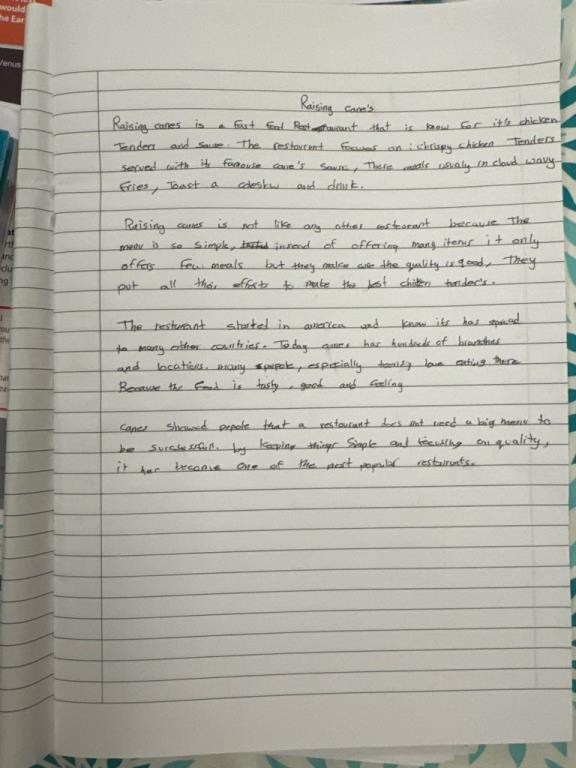 would
he Ear
Venus
Raising Cane's
Raising canes is a fast food Restaurant that is know for it's chicken
Tenders and sauce. The restaurant focuses on : chrispy chicken Tenders
served with its famouse cane's sauce, There meals usualy in cloud wavy
fries, Toast a coleslw and drink.
Raising canes is not like any other restaurant because The
menu is so simple, insead of offering many items it only
offers few meals but they make sure the quality is good, They
put all their efforts to make the best chiken tender's.
The resturant started in america and know its has spread
to many other countries. Today canes has hundreds of branches
and locations. many pepole, especially teens, love eating there
Because the food is tasty, good and feeling
canes showed pepole that a restaurant does not need a big menu to
be surcsessfull. by keeping things simple and focusing on quality,
it has become one of the most popular restaurants.